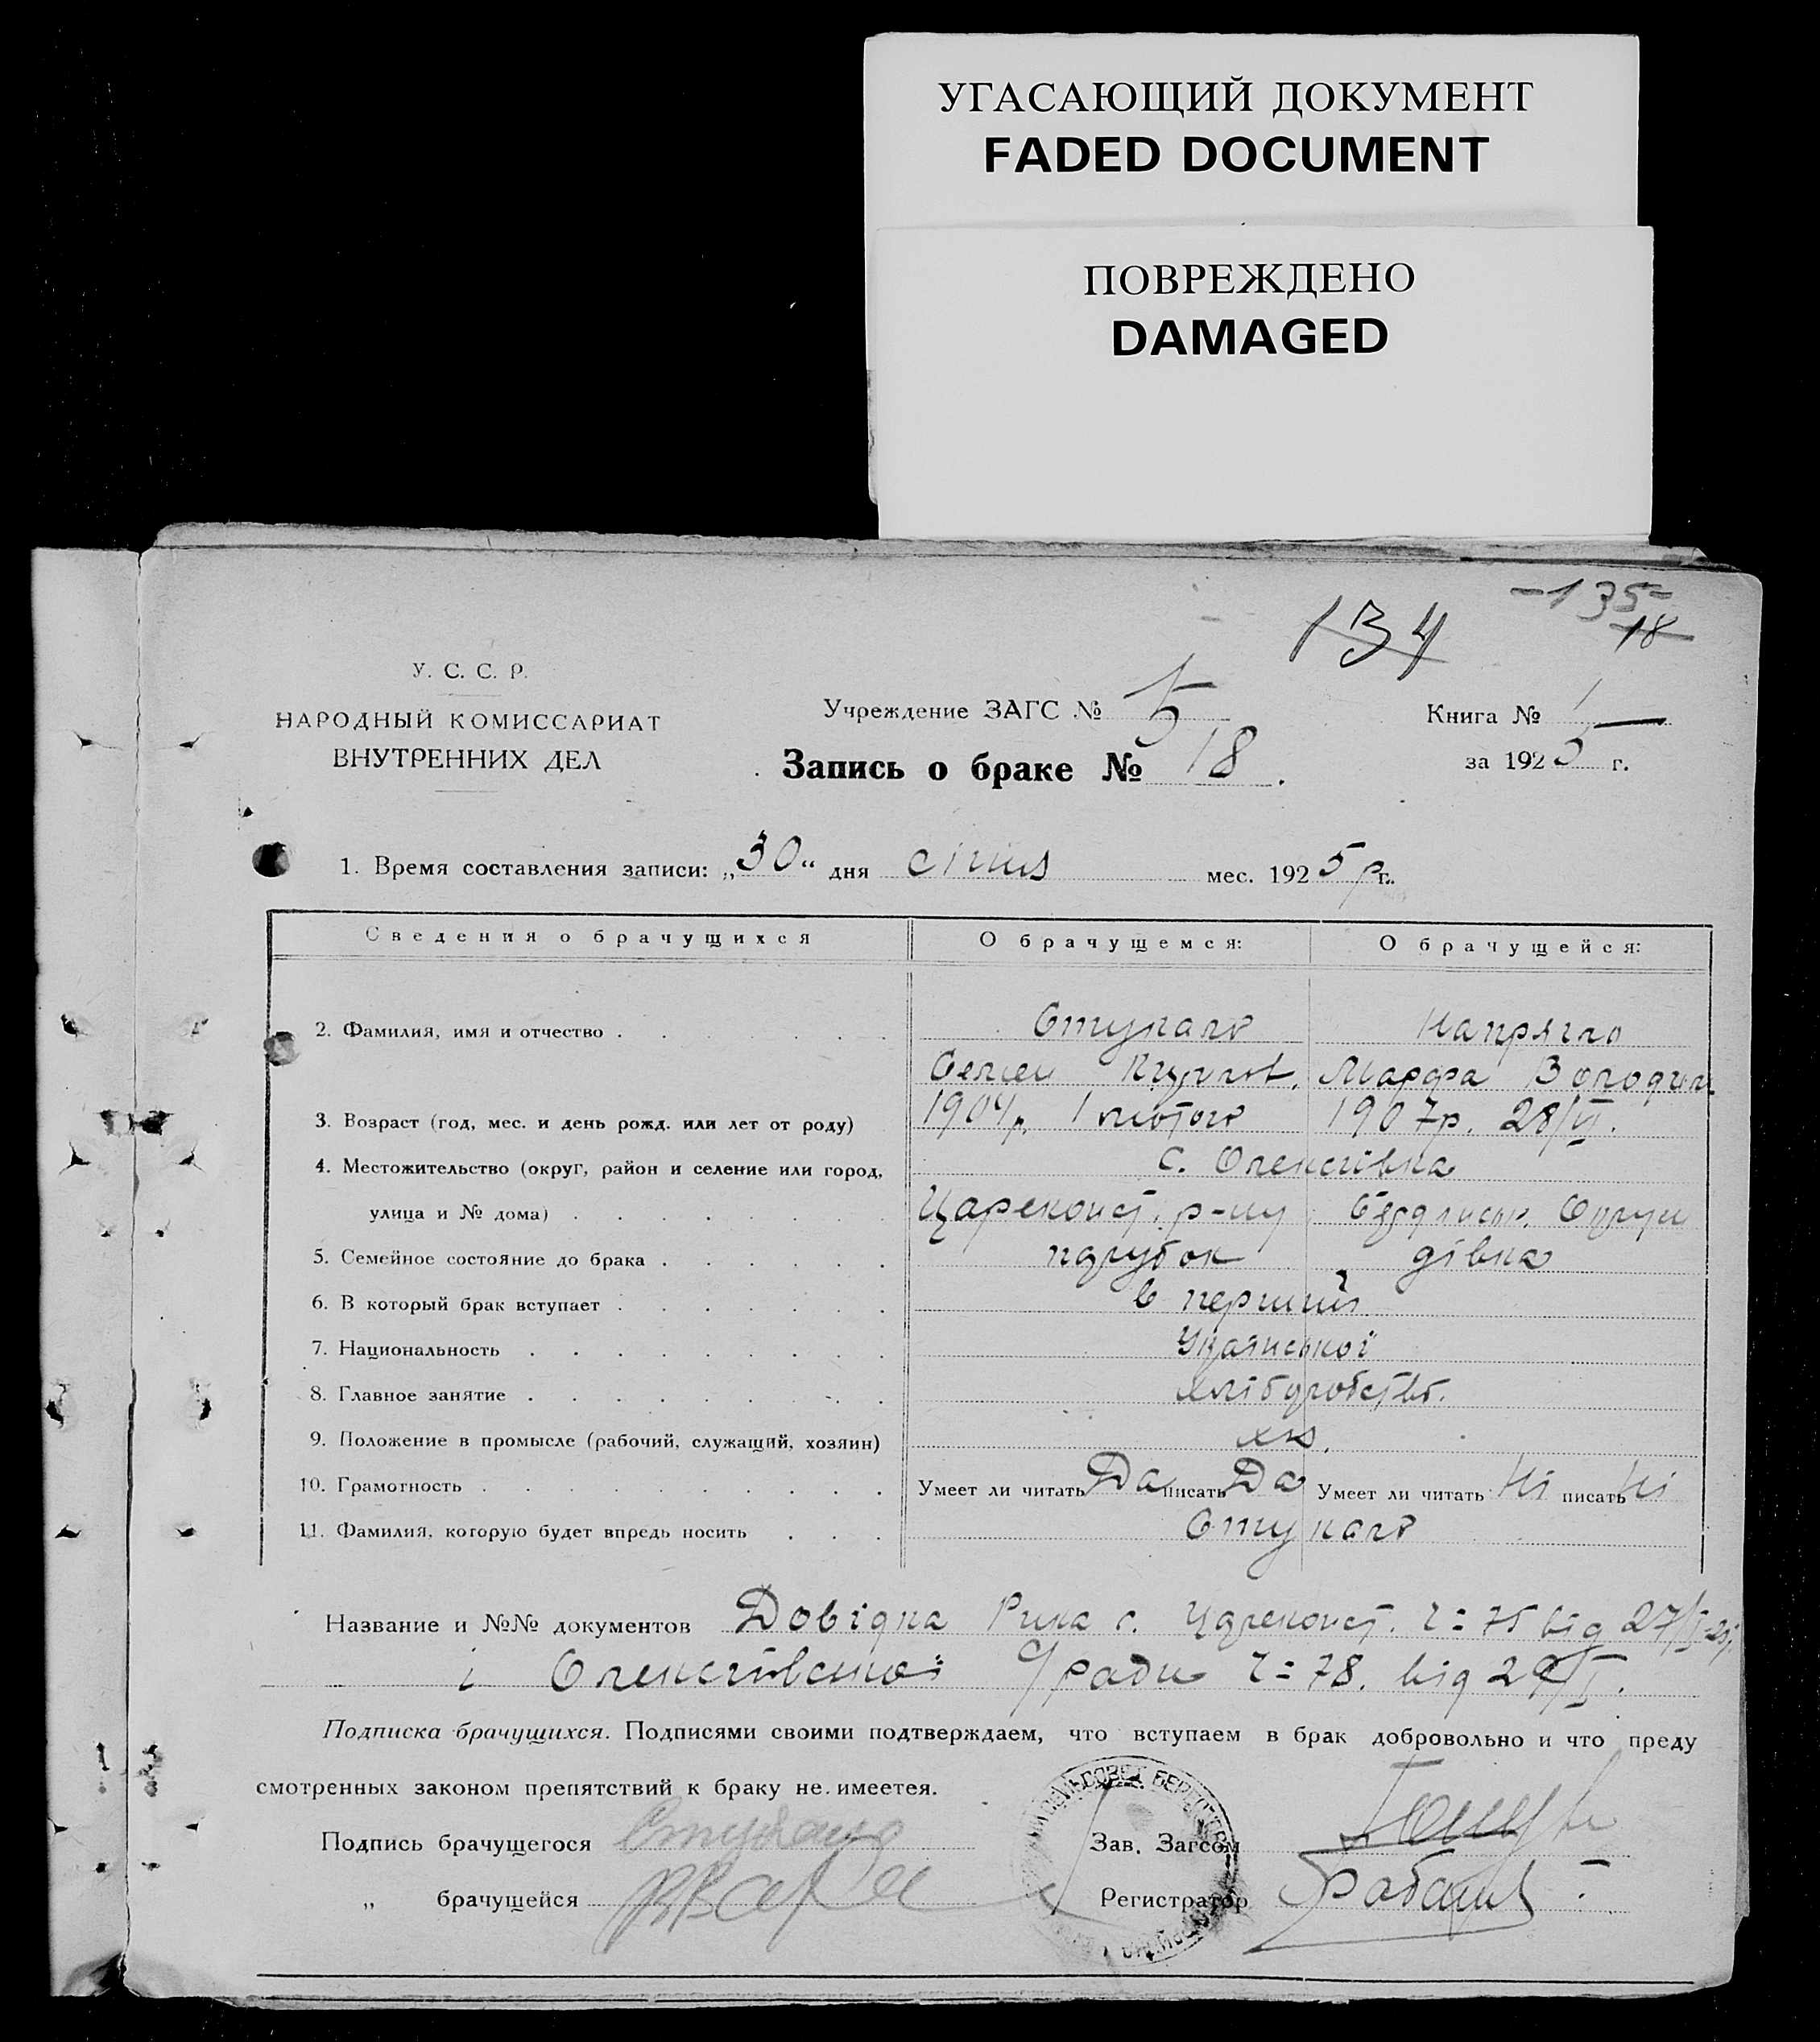 УГАСАЮЩИЙ ДОКУМЕНТ
FADED DOCUMENT
ПОВРЕЖДЕНО
DAMAGED
-135-
134
18
У. С. С. Р.
НАРОДНЫЙ КОМИССАРИАТ
ВНУТРЕННИХ ДЕЛ
Учреждение ЗАГС № 5
Запись о браке № 18.
Книга № 1
за 1925 г.
1. Время составления записи: „30“ дня січня мес. 1925 р г.
Сведения о брачущихся О брачущемся: О брачущейся:
2. Фамилия, имя и отчество Ступало Напрягло
Семен Марфа
3. Возраст (год, мес. и день рожд. или лет от роду) 1904 р. 1 лютого 1907 р. 28/VI.
4. Местожительство (округ, район и селение или город, с. Олексіївка
улица и № дома) Цареконст. р-ну Бердянськ. Округи
5. Семейное состояние до брака парубок дівка
6. В который брак вступает в перший
7. Национальность Української
8. Главное занятие хліборобство.
9. Положение в промысле (рабочий, служащий, хозяин)
10. Грамотность Умеет ли читать Да писать Да Умеет ли читать Ні писать Ні
11. Фамилия, которую будет впредь носить Ступало
Название и №№ документов Довідка Цареконст. ч = 75 від 27/I-25
і Олексіївської с/ради ч = 78. від 29/I.
Подписка брачущихся. Подписями своими подтверждаем, что вступаем в брак добровольно и что преду
смотренных законом препятствий к браку не имеетея.
Подпись брачущегося Зав. Загсом
„ брачущейся Регистратор